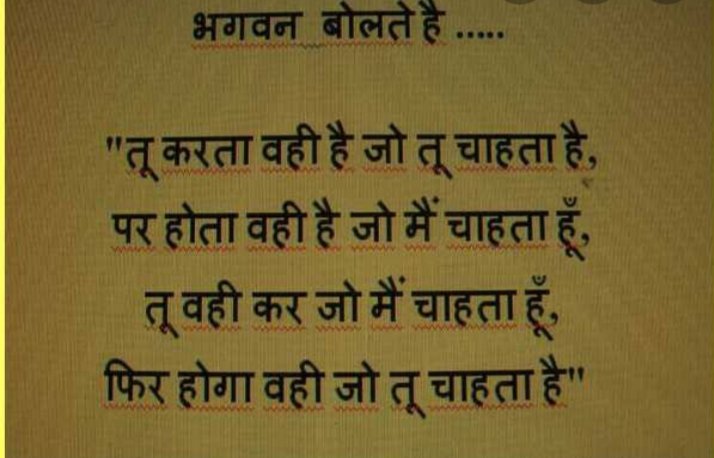 भगवन बोलते है .....
"तू करता वही है जो तू चाहता है,
पर होता वही है जो मैं चाहता हूँ,
तू वही कर जो मैं चाहता हूँ,
फिर होगा वही जो तू चाहता है"